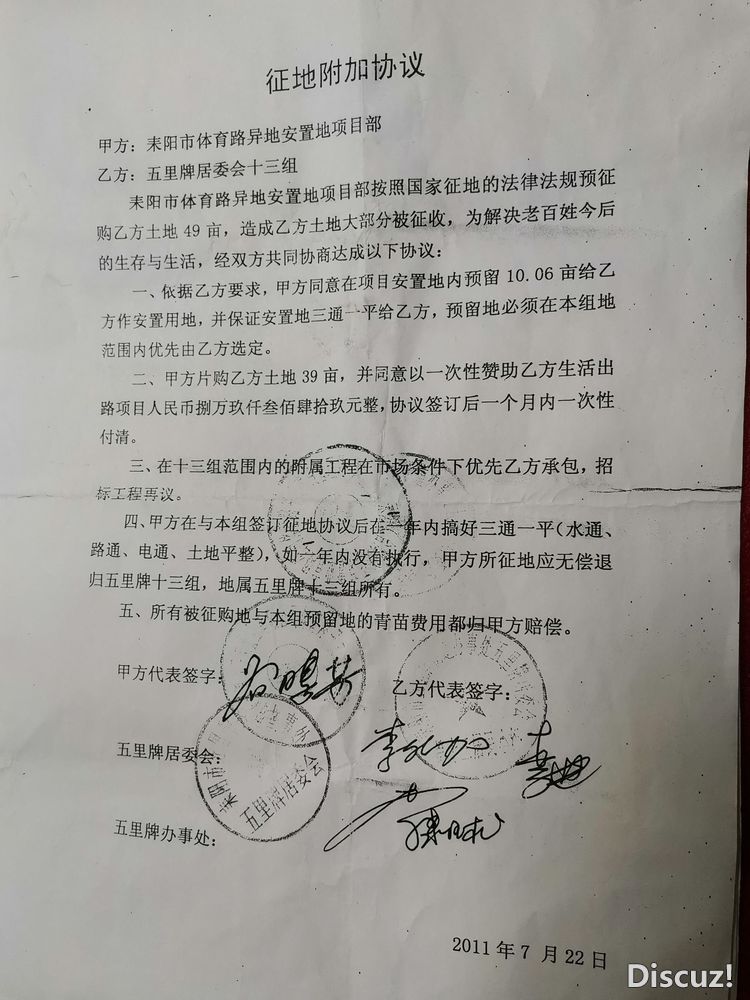 征地附加协议
甲方：耒阳市体育路异地安置地项目部
乙方：五里牌居委会十三组
耒阳市体育路异地安置地项目部按照国家征地的法律法规预征
购乙方土地49亩，造成乙方土地大部分被征收，为解决老百姓今后
的生存与生活，经双方共同协商达成以下协议：
一、依据乙方要求，甲方同意在项目安置地内预留10.06亩给乙
方作安置用地，并保证安置地三通一平给乙方，预留地必须在本组地
范围内优先由乙方选定。
二、甲方片购乙方土地39亩，并同意以一次性赞助乙方生活出
路项目人民币捌万玖仟叁佰肆拾玖元整，协议签订后一个月内一次性
付清。
三、在十三组范围内的附属工程在市场条件下优先乙方承包，招
标工程再议。
四、甲方在与本组签订征地协议后在一年内搞好三通一平（水通、
路通、电通、土地平整），如一年内没有执行，甲方所征地应无偿退
归五里牌十三组，地属五里牌十三组所有。
五、所有被征购地与本组预留地的青苗费用都归甲方赔偿。
甲方代表签字：
乙方代表签字：
五里牌居委会：
耒阳市
五里牌居委会
五里牌办事处：
2011年7月22日
Discuz!